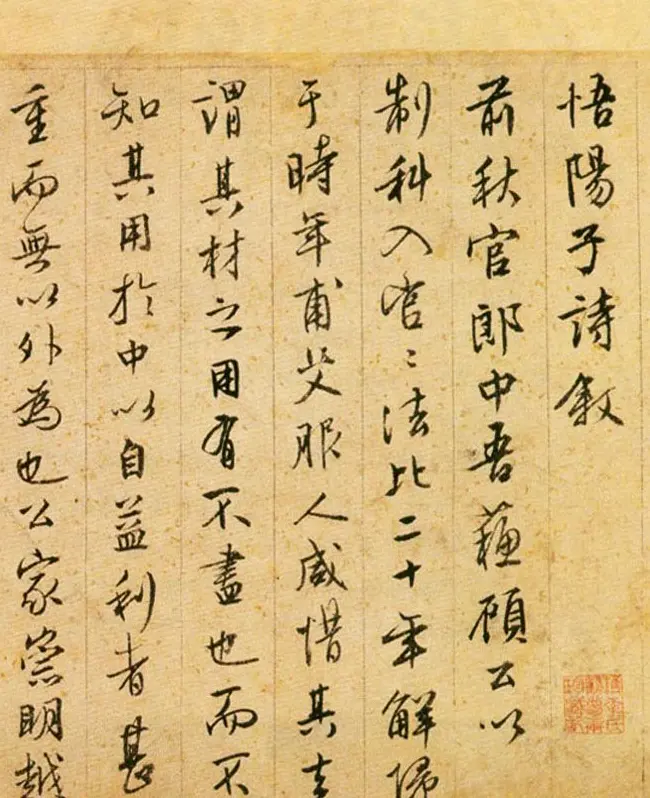 悟陽子詩敘
前秋官郎中吾蘇顧公以
制科入官〻法比二十年解歸
于時年甫艾服人咸惜其去
謂其材之用有不盡也而不
知其用於中以自益利者甚
重而無以外為也公家崇明越